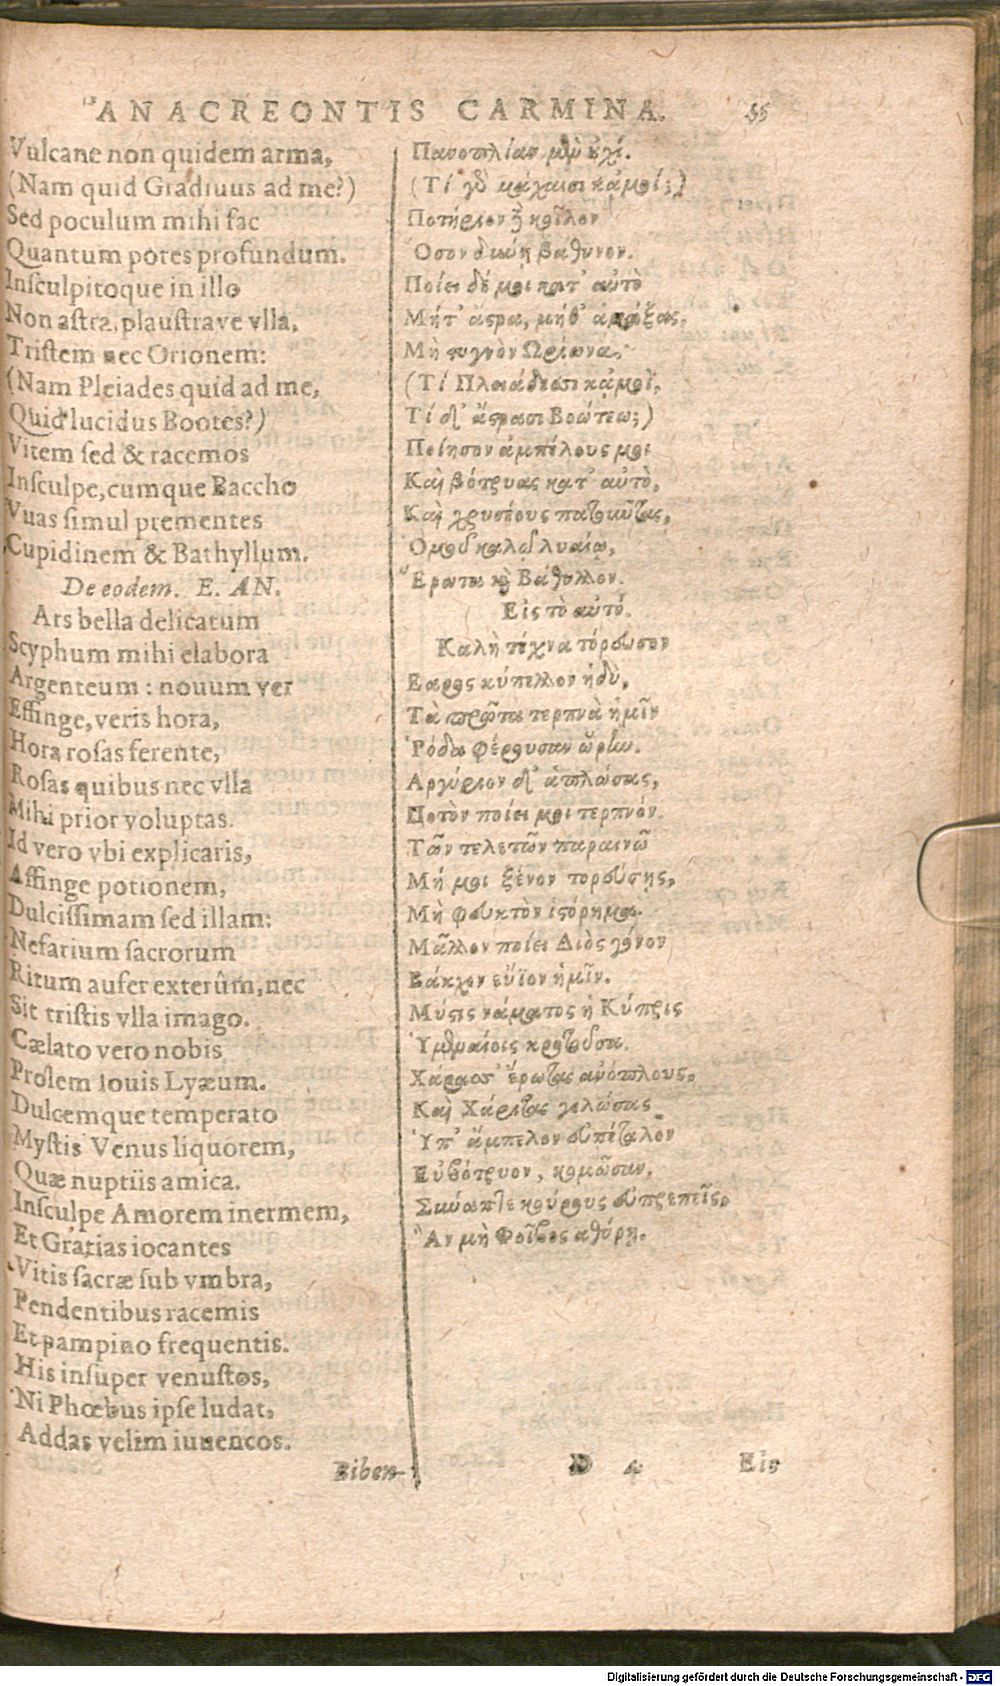 ANACREONTIS CARMINA. 55
Vulcane non quidem arma,
(Nam quid Gradiuus ad me?)
Sed poculum mihi fac
Quantum potes profundum.
Insculpitoque in illo
Non astra, plaustrave vlla,
Tristem nec Orionem:
(Nam Pleiades quid ad me,
Quid lucidus Bootes?)
Vitem sed & racemos
Insculpe, cumque Baccho
Vuas simul prementes
Cupidinem & Bathyllum.
De eodem. E. AN.
Ars bella delicatum
Scyphum mihi elabora
Argenteum: nouum ver
Effinge, veris hora,
Hora rosas ferente,
Rosas quibus nec vlla
Mihi prior voluptas.
Id vero vbi explicaris,
Affinge potionem,
Dulcissimam sed illam:
Nefarium sacrorum
Ritum aufer exterûm, nec
Sit tristis vlla imago.
Cælato vero nobis
Prolem Iouis Lyæum.
Dulcemque temperato
Mystis Venus liquorem,
Quæ nuptiis amica.
Insculpe Amorem inermem,
Et Gratias iocantes
Vitis sacræ sub vmbra,
Pendentibus racemis
Et pampino frequentis.
His insuper venustos,
Ni Phœbus ipse ludat,
Addas velim iuuencos.
Biben-
Πανοπλίαν μὲν οὐχί.
(Τί γὸ μάχαισι κἀμοί;)
Ποτήριον ἢ κοῖλον
Ὅσον δύνῃ βάθυνον.
Ποίει δέ μοι κατ' αὐτὸ
Μήτ' ἄστρα, μήθ' ἁμάξας,
Μὴ στυγνὸν Ὠρίωνα,
(Τί Πλειάδεσσι κἀμοί,
Τί δ' ἄστρασι Βοώτεω;)
Ποίησον ἀμπέλους μοι
Καὶ βότρυας κατ' αὐτὸ,
Καὶ χρυσέους πατοῦντας,
Ὁμοῦ καλῷ λυαίῳ,
Ἔρωτα καὶ Βάθυλλον.
Εἰς τὸ αὐτό.
Καλὴ τέχνα τόρευσον
Εαρος κύπελλον ἡδὺ,
Τὰ πρῶτα τερπνὰ ἡμῖν
Ῥόδα φέρουσαν ὥρην.
Αργύριον δ' ἁπλώσας,
Ποτὸν ποίει μοι τερπνόν.
Τῶν τελετῶν παραινῶ
Μή μοι ξένον τορεύσῃς,
Μὴ φευκτὸν ἱστόρημα.
Μᾶλλον ποίει Διὸς γόνον
Βάκχον εὔϊον ἡμῖν.
Μύστις νάματος ἡ Κύπρις
Ὑμεναίοις κροτοῦσα.
Χάρασσ' ἔρωτας ἀνόπλους,
Καὶ Χάριτας γελώσας
Ὑπ' ἄμπελον εὐπέταλον
Εὐβότρυον, κομῶσαν.
Σύναπτε κούρους εὐπρεπεῖς,
Ἂν μὴ Φοῖβος ἀθύρῃ.
D 4 Εἰς
Digitalisierung gefördert durch die Deutsche Forschungsgemeinschaft - DFG